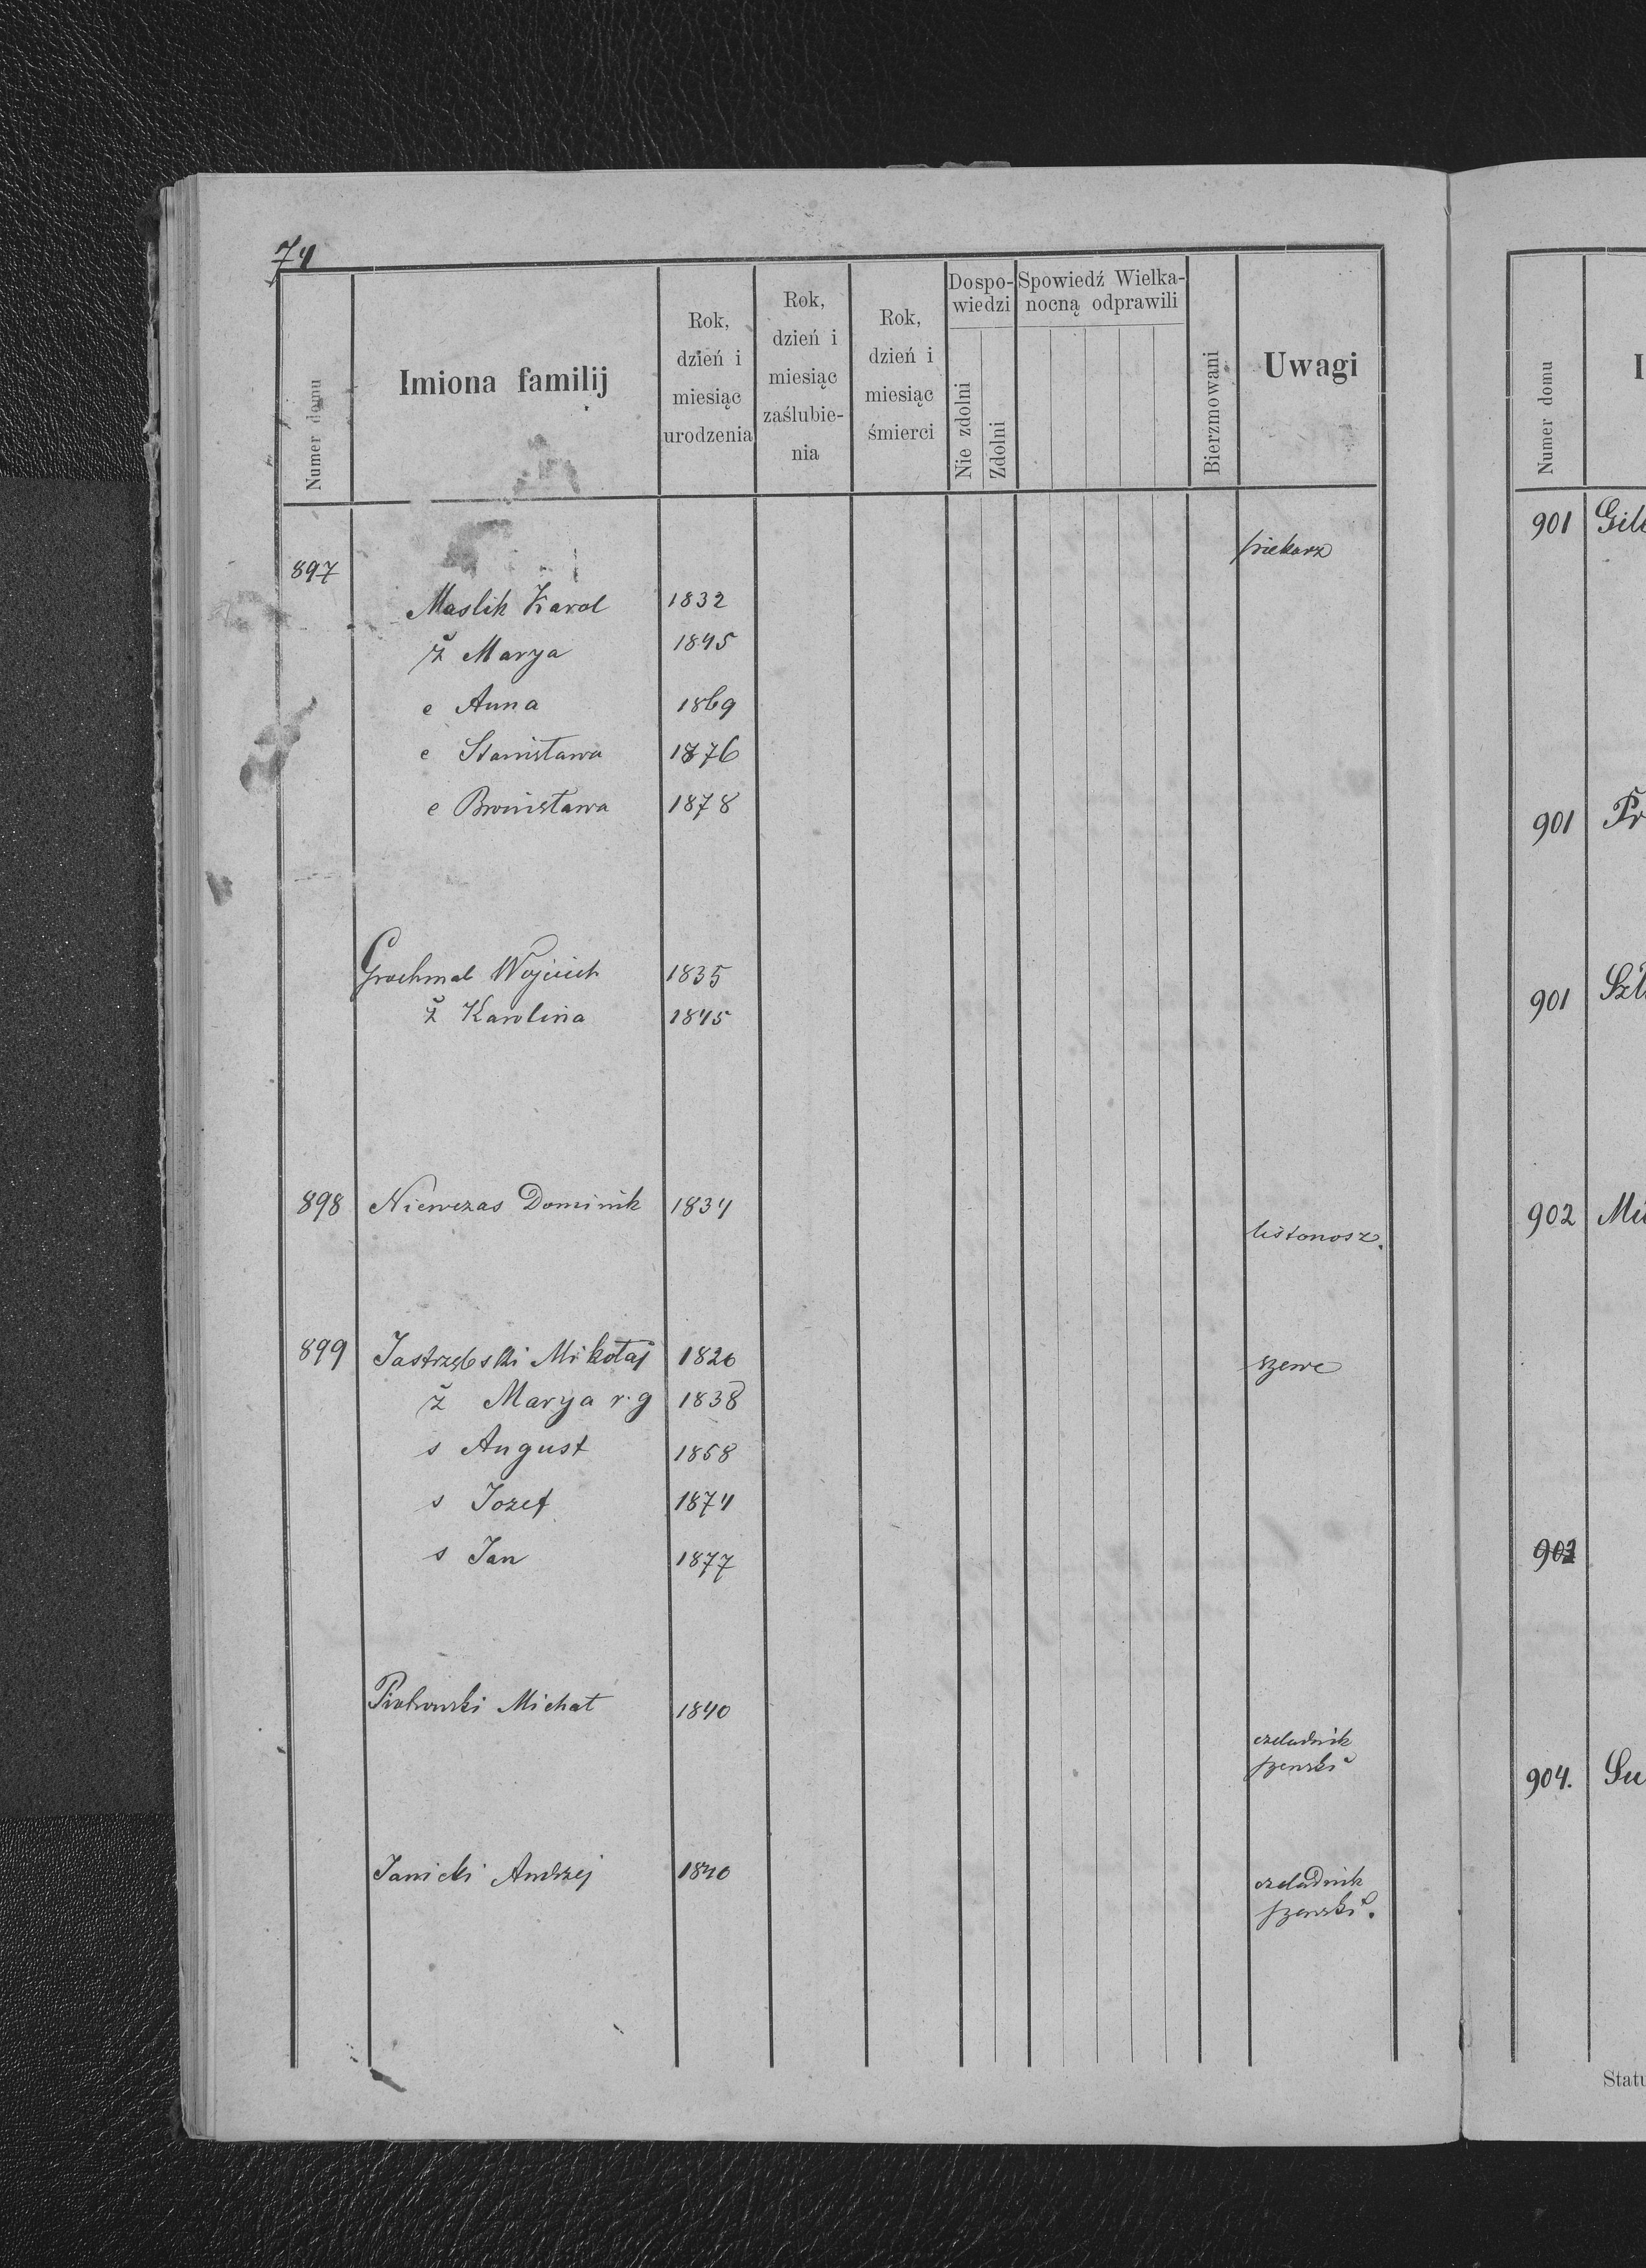 74
Numer domu
Imiona familij
Rok, dzień i miesiąc urodzenia
Rok, dzień i miesiąc zaślubie-nia
Rok, dzień i miesiąc śmierci
Dospo-wiedzi
Nie zdolni
Zdolni
Spowiedź Wielka-nocną odprawili
Bierzmowani
Uwagi
897 piekarz
Maslik Karol 1832
ż Marya 1845
c Anna 1869
c Stanisława 1876
c Bronisława 1878
Grochmal Wojciech 1835
ż Karolina 1845
898 Niewczas Dominik 1834
listonosz.
899 Jastrzębski Mikołaj 1820 szewc
ż Marya r. g 1838
s August 1858
s Jozef 1874
s Jan 1877
Michał 1840
czeladnik
szewski
Janicki Andrzej 1840 czeladnik
szewski.
Numer domu
I
901 Gil
901 Pr
901
902
902
904. Su
Statu